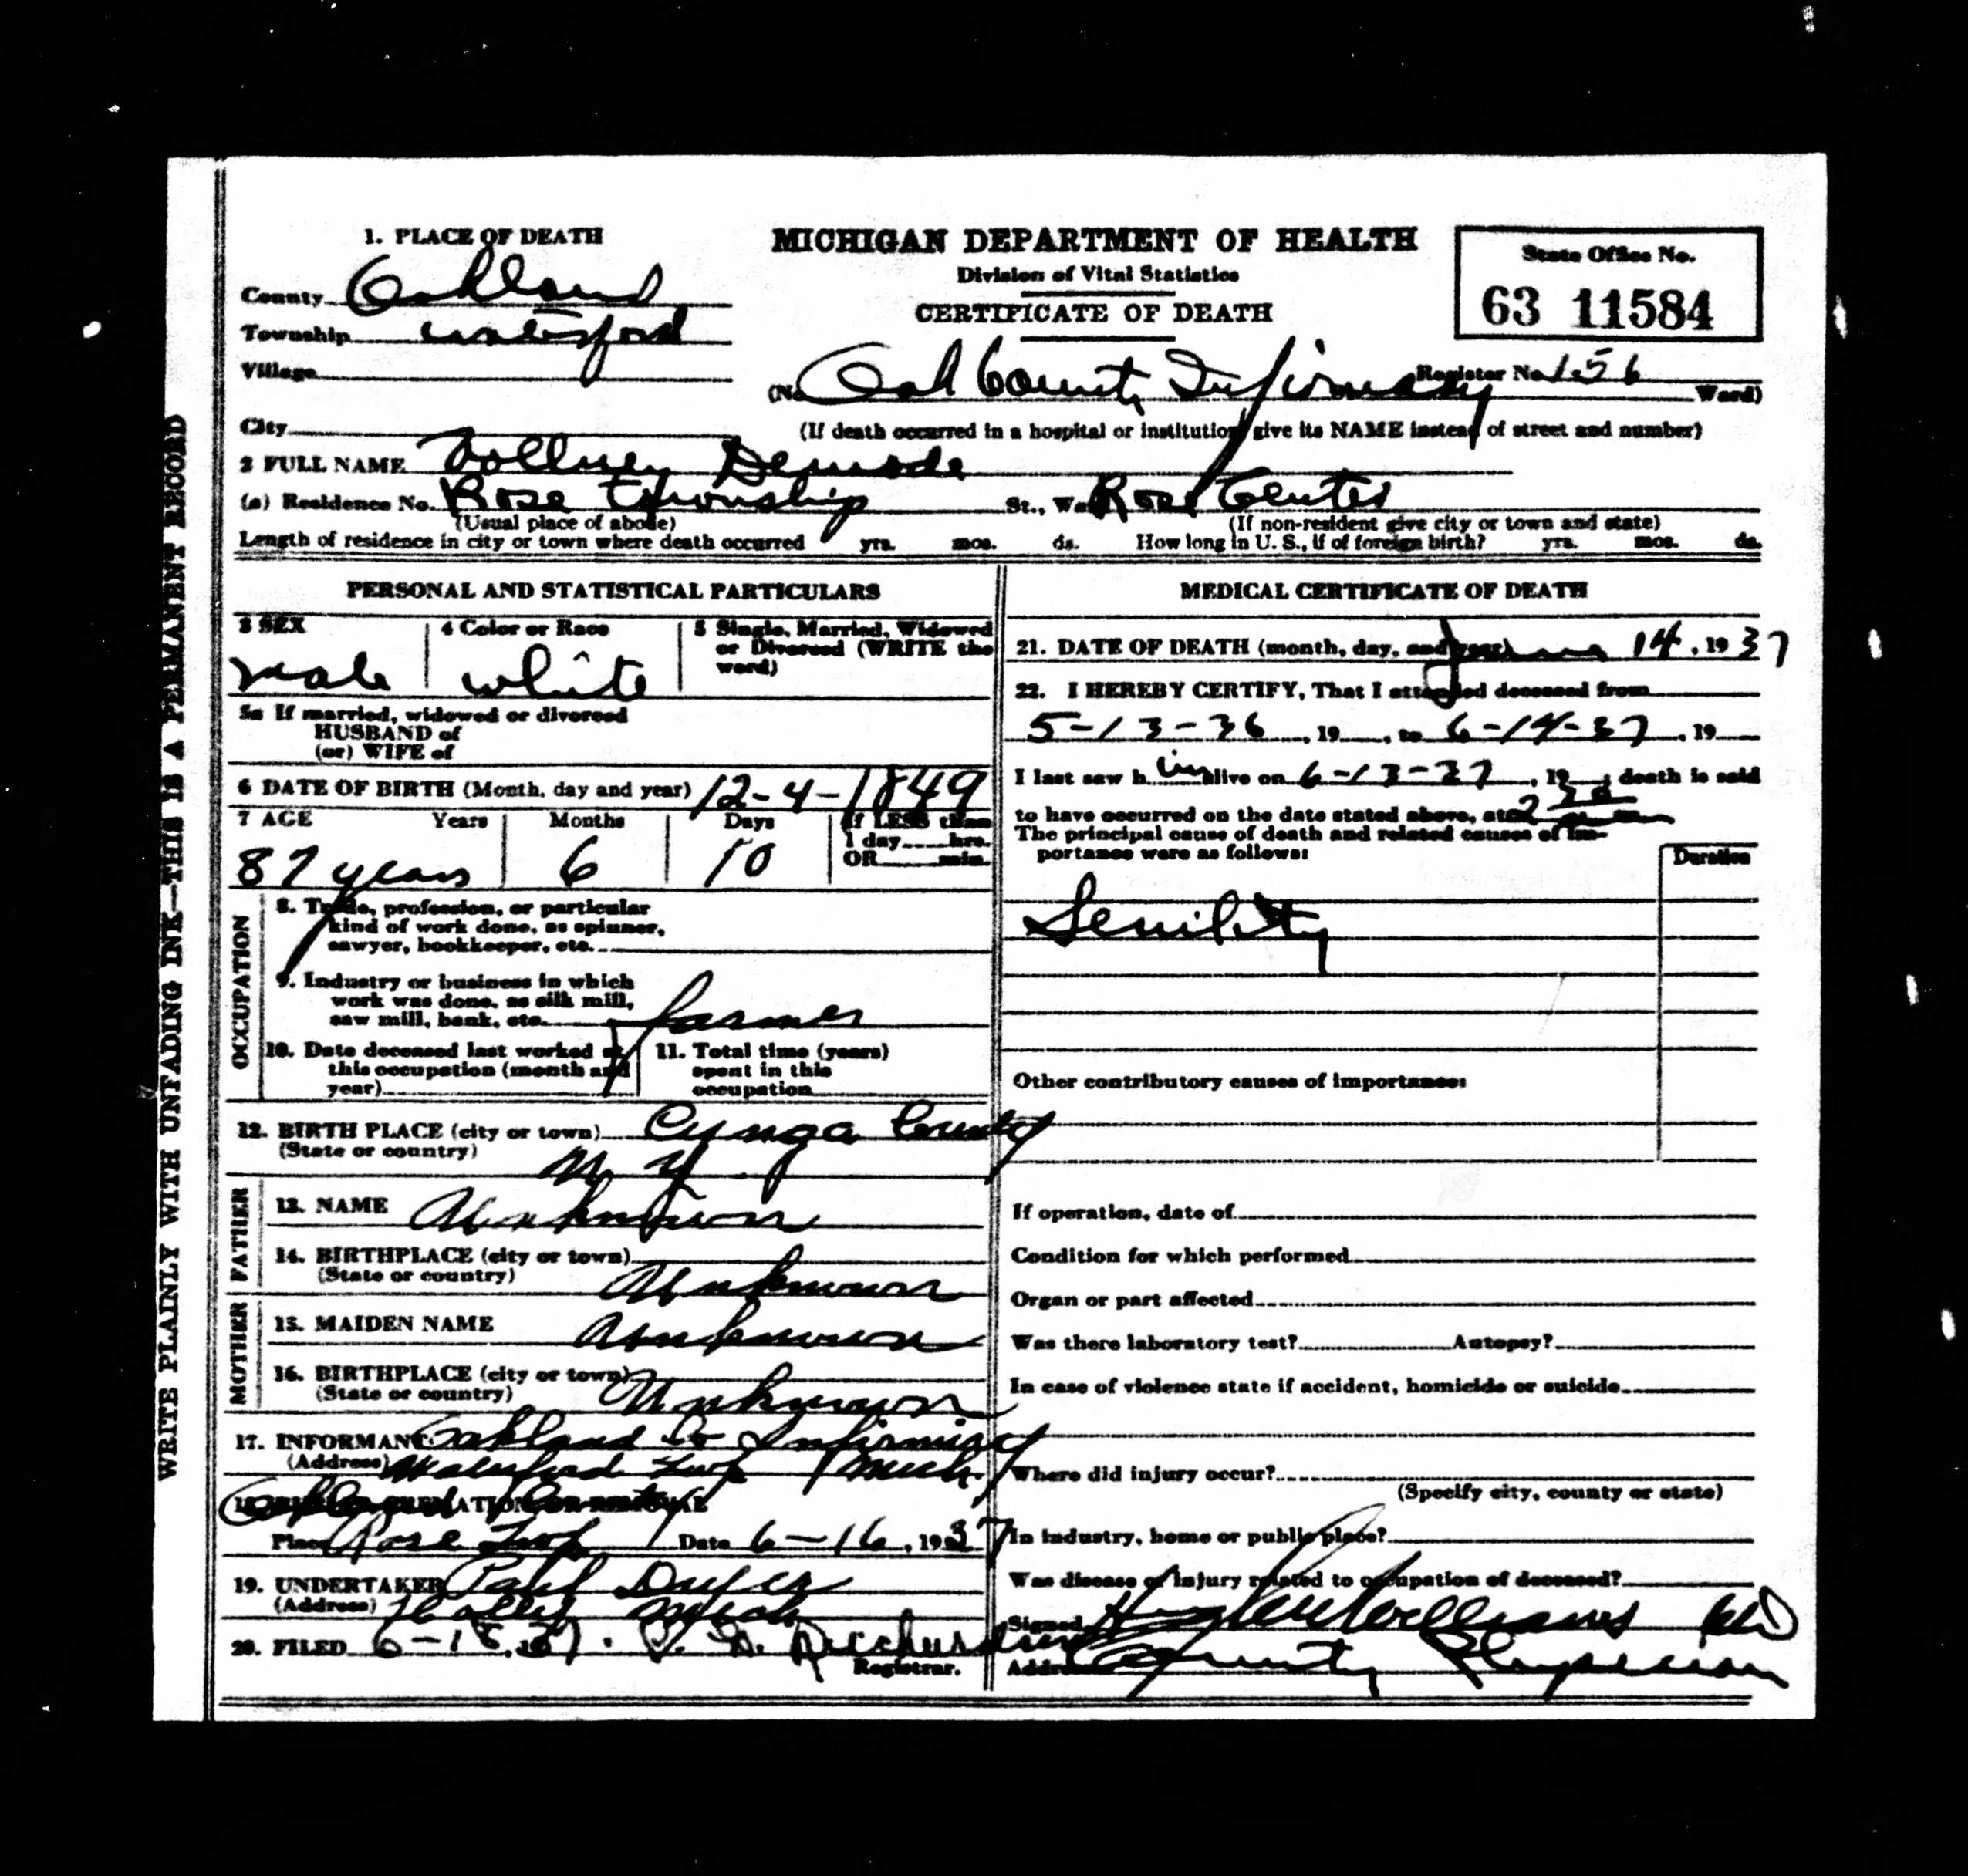 1. PLACE OF DEATH
County Oakland
Township Waterford
Village
City
MICHIGAN DEPARTMENT OF HEALTH
Division of Vital Statistics
CERTIFICATE OF DEATH
State Office No.
63 11584
Register No. 156
(No. Oak County Infirmary Ward)
(If death occurred in a hospital or institution, give its NAME instead of street and number)
2 FULL NAME Vollney Demode
(a) Residence No. Rose Township St., Wa Rose Center
(Usual place of abode) (If non-resident give city or town and state)
Length of residence in city or town where death occurred yrs. mos. ds. How long in U. S., if of foreign birth? yrs. mos. ds.
WRITE PLAINLY WITH UNFADING INK—THIS IS A PERMANENT RECORD
PERSONAL AND STATISTICAL PARTICULARS
3 SEX
male
4 Color or Race
white
5 Single, Married, Widowed
or Divorced (WRITE the
word)
5a If married, widowed or divorced
HUSBAND of
(or) WIFE of
6 DATE OF BIRTH (Month, day and year) 12-4-1849
7 AGE Years Months Days If LESS than
1 day hrs.
OR min.
87 years 6 10
OCCUPATION
8. Trade, profession, or particular
kind of work done, as spinner,
sawyer, bookkeeper, etc.
9. Industry or business in which
work was done, as silk mill,
saw mill, bank, etc. farmer
10. Date deceased last worked at
this occupation (month and
year)
11. Total time (years)
spent in this
occupation
12. BIRTH PLACE (city or town) Cynga County
(State or country) N. Y.
FATHER
13. NAME Unknown
14. BIRTHPLACE (city or town)
(State or country) Unknown
MOTHER
15. MAIDEN NAME Unknown
16. BIRTHPLACE (city or town)
(State or country) Unknown
17. INFORMANT Oakland Co Infirmary
(Address) Waterford Twp Mich.
18. Oakland County
Place Rose Twp Date 6-16, 1937
19. UNDERTAKER Paul Dryer
(Address) Holly Mich
20. FILED 6-15, 1937.
Registrar.
MEDICAL CERTIFICATE OF DEATH
21. DATE OF DEATH (month, day, and year) June 14, 1937
22. I HEREBY CERTIFY, That I attended deceased from
5-13-36, 19 , to 6-14-37, 19
I last saw him alive on 6-13-37, 19 ; death is said
to have occurred on the date stated above, at 2 30 m
The principal cause of death and related causes of im-
portance were as follows:
Duration
Senility
Other contributory causes of importance:
If operation, date of
Condition for which performed
Organ or part affected
Was there laboratory test? Autopsy?
In case of violence state if accident, homicide or suicide
Where did injury occur?
(Specify city, county or state)
In industry, home or public place?
Was disease or injury related to occupation of deceased?
Signed Williams MD
Address County Physician